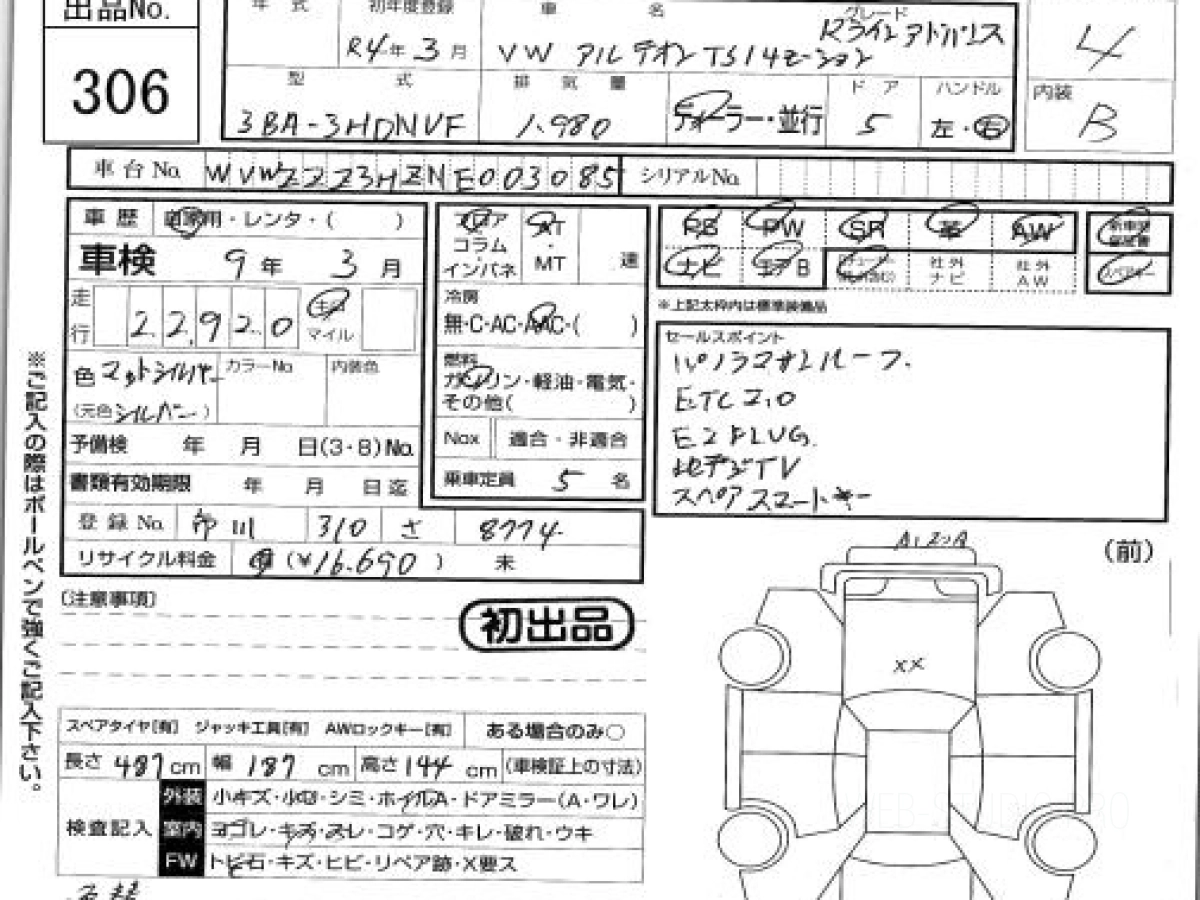 出品No.
306
年式 初年度登録 車名 グレード
R4年3月 VW アルテオン TSI 4モーション Rラインアドバンス
4
型式 排気量 ドア ハンドル 内装
3BA-3HDNVF 1.980 ディーラー・並行 5 左・右 B
車台No. WVWZZZ3HZNE003085 シリアルNo.
車歴 自家用・レンタ・( )
車検 9年 3月
走行 22,920 キロ マイル
色 マットシルバー カラーNo. 内装色
(元色 シルバー)
予備検 年 月 日(3・8)No.
書類有効期限 年 月 日迄
登録No. 市川 310 さ 8774
リサイクル料金 (¥16.690) 未
フロア
コラム
インパネ
AT・MT 速
冷房
無・C・AC・AAC・( )
燃料
ガソリン・軽油・電気・
その他( )
Nox 適合・非適合
乗車定員 5 名
PS PW SR 革 AW 新車時保証書
ナビ エアB 社外ナビ 社外AW
※上記太枠内は標準装備品
セールスポイント
パノラマサンルーフ.
ETC2.0
地デジTV
スペアスマートキー
〔注意事項〕
初出品
(前)
XX
スペアタイヤ[有] ジャッキ工具[有] AWロックキー[有] ある場合のみ○
長さ 487cm 幅 187cm 高さ 144cm (車検証上の寸法)
検査記入
外装 小キズ・小凹・シミ・ホイルA・ドアミラー(A・ワレ)
室内 ヨゴレ・キズ・スレ・コゲ・穴・キレ・破れ・ウキ
FW トビ石・キズ・ヒビ・リペア跡・X要ス
※ご記入の際はボールペンで強くご記入下さい。